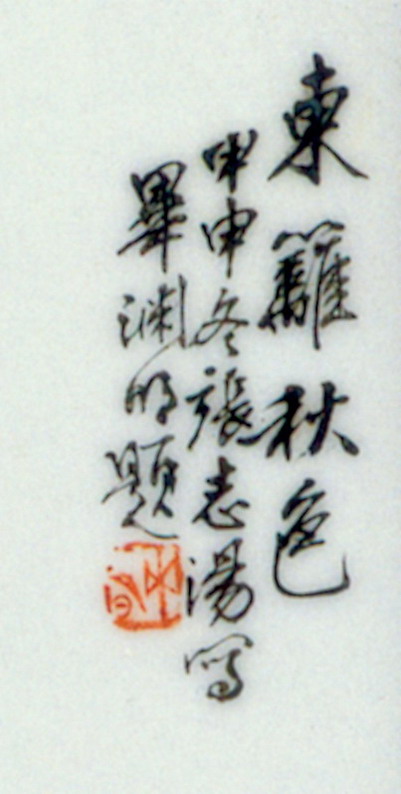 東籬秋色
甲申冬張志湯寫
畢淵明題